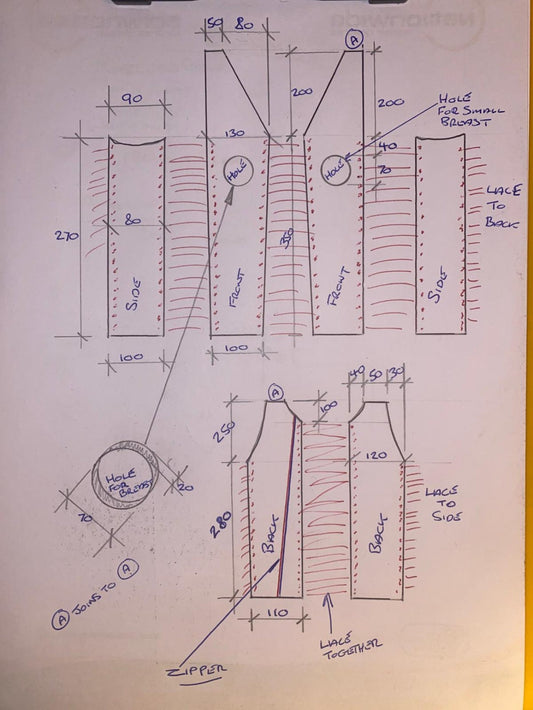 50 80
A
200
200
HOLE
FOR SMALL
BREAST
90
130
40
HOLE
HOLE
70
270
80
350
LACE
TO
BACK
SIDE
FRONT
FRONT
SIDE
100
100
40 50 30
A
100
250
120
HOLE
FOR
BREAST
20
70
280
BACK
BACK
LACE
TO
SIDE
A JOINS TO A
110
LACE
TOGETHER
ZIPPER